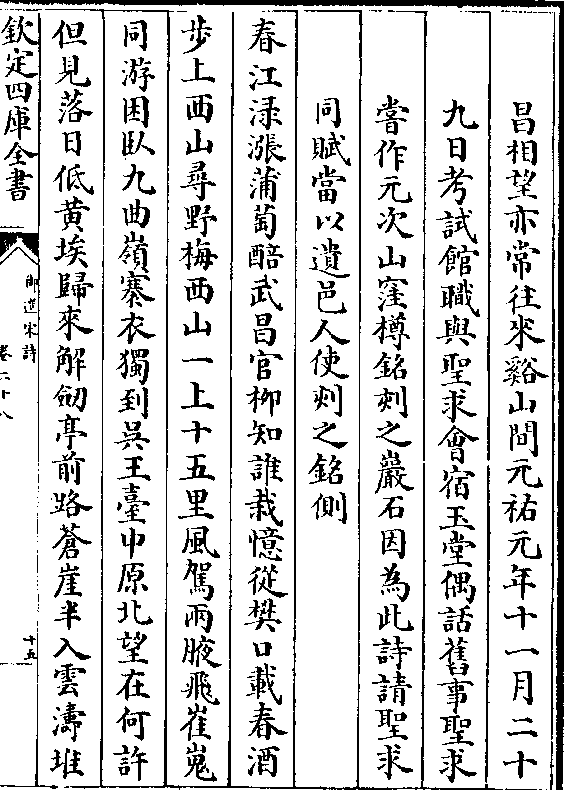 昌相望亦常往來谿山間元祐元年十一月二十
九日考試館職與聖求會宿玉堂偶話舊事聖求
嘗作元次山窪樽銘刻之巖石因為此詩請聖求
同賦當以遺邑人使刻之銘側
春江渌漲蒲萄醅武昌官栁知誰栽憶從樊口載春酒
步上西山尋野梅西山一上十五里風駕兩腋飛崔嵬
同游困臥九曲嶺褰衣獨到吳王臺中原北望在何許
但見落日低黄埃歸來解劒亭前路蒼崖半入雲濤堆
欽定四庫全書
御選宋詩
卷二十八
十五